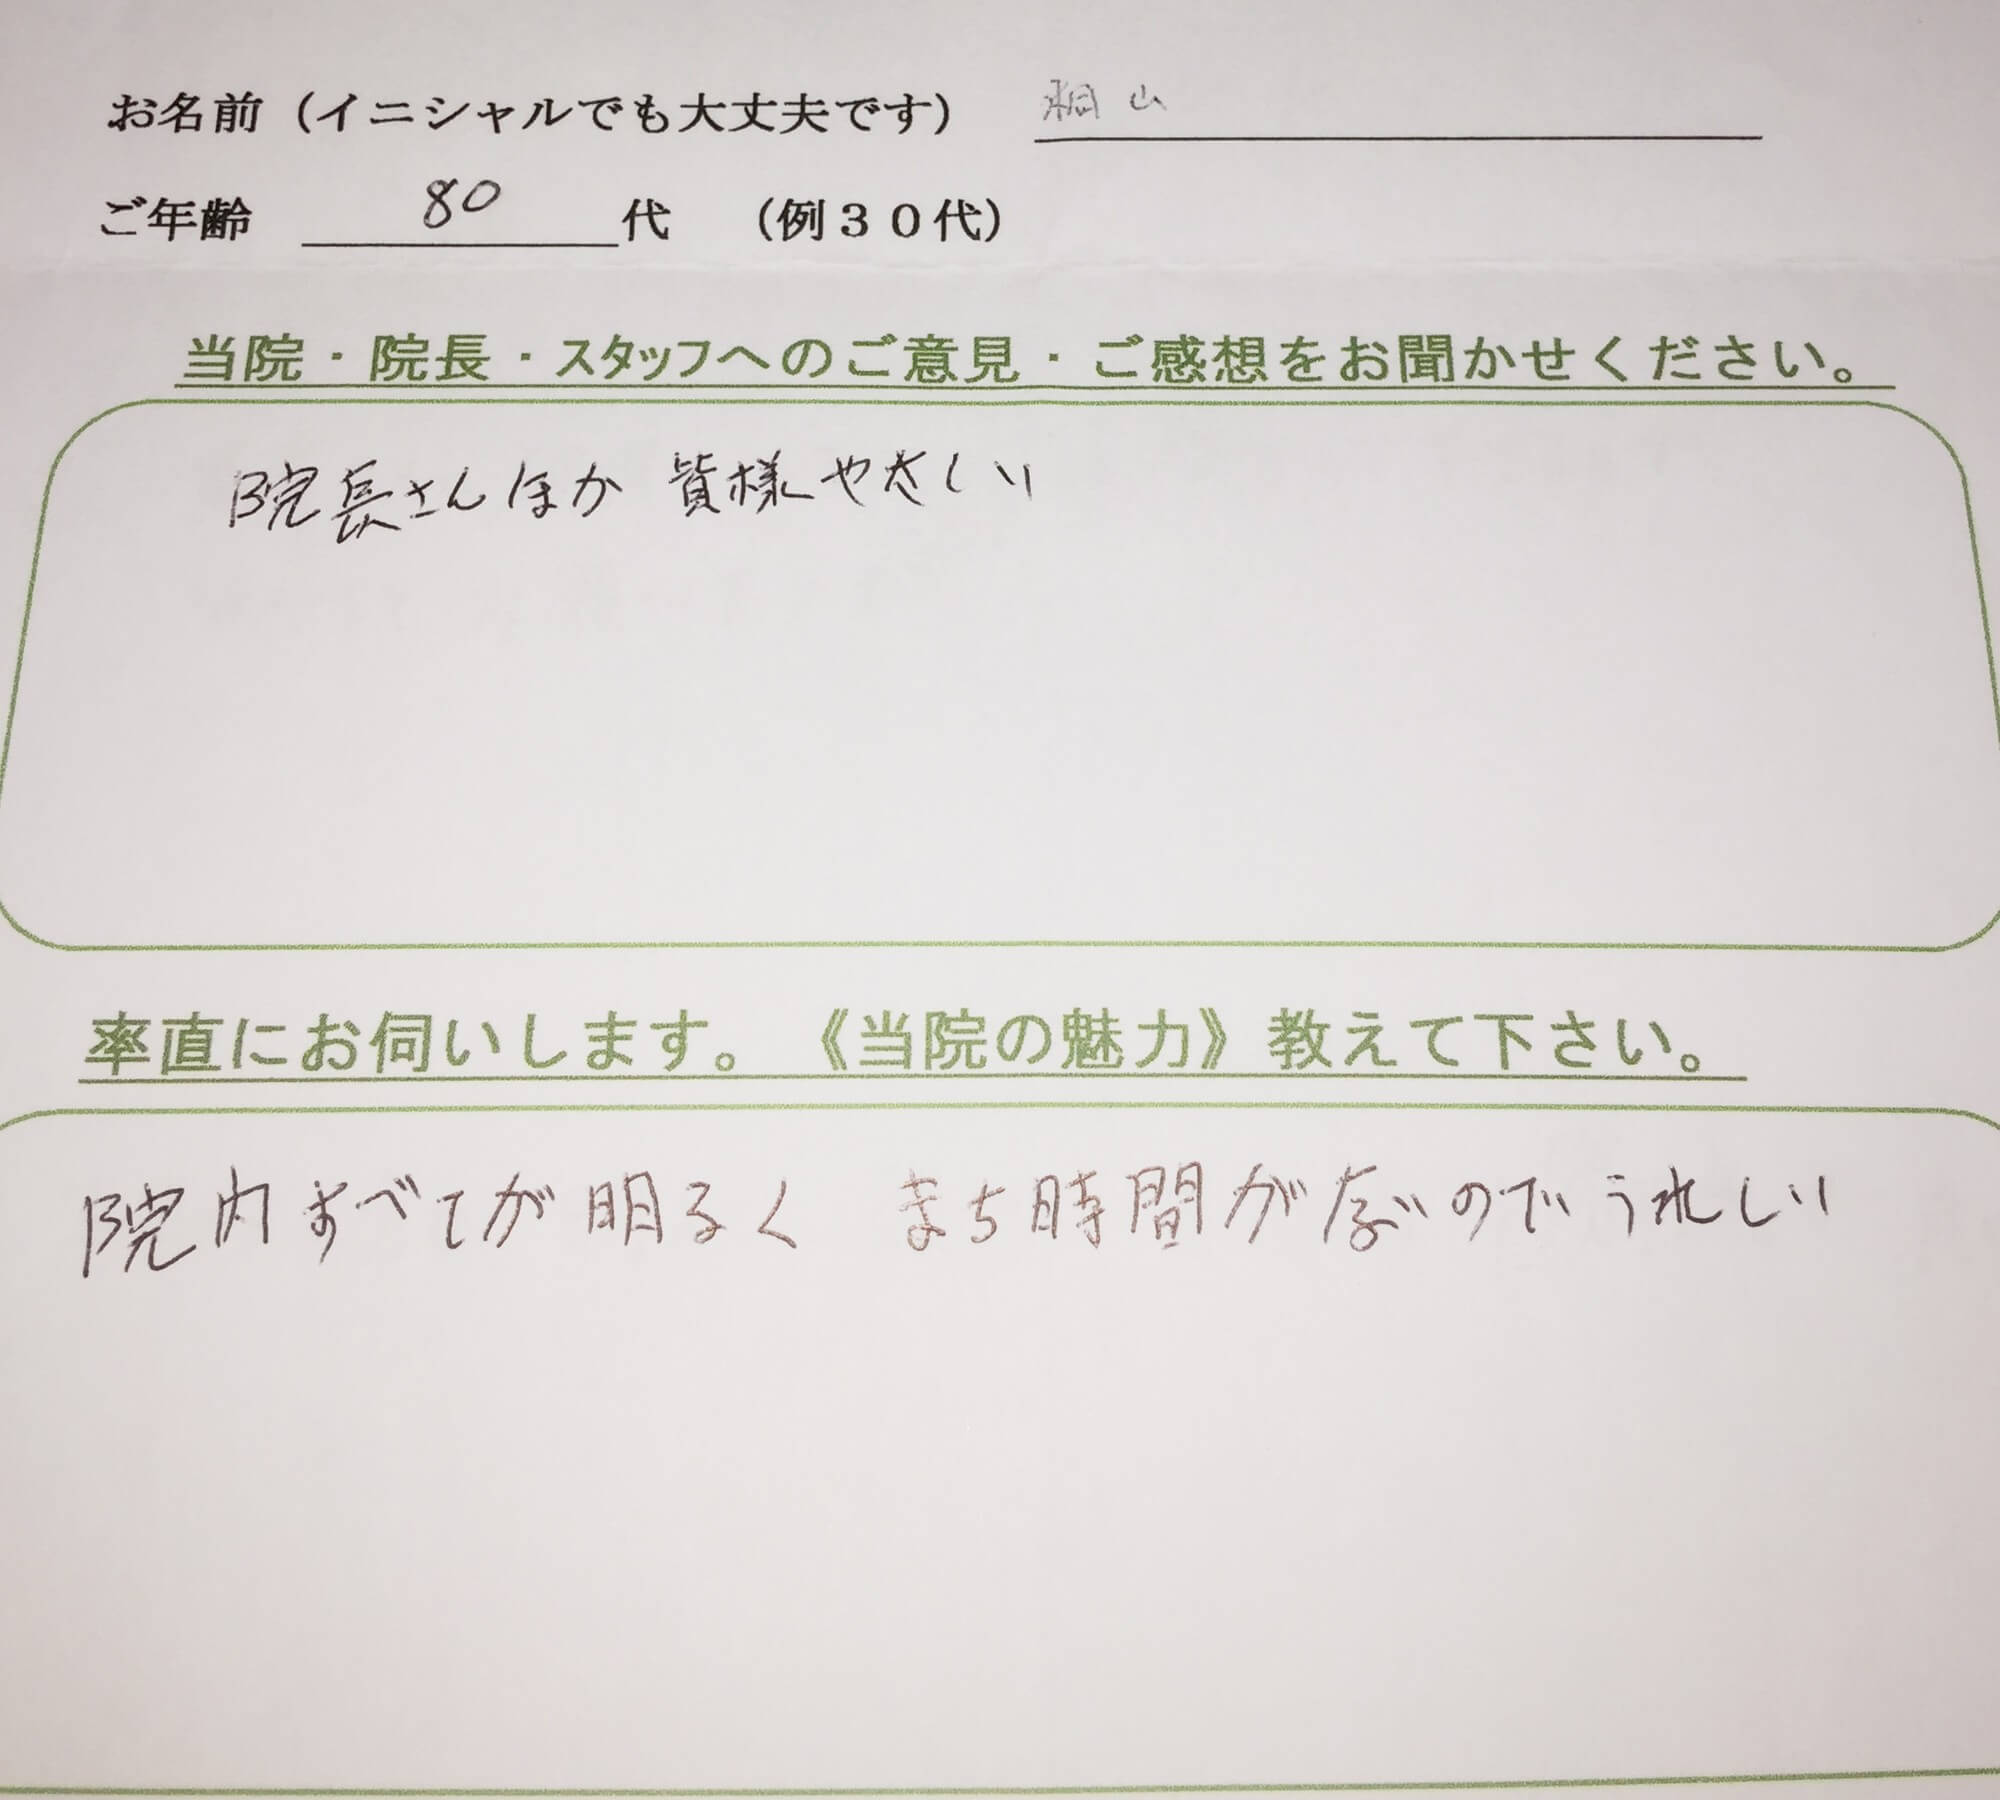 お名前（イニシャルでも大丈夫です） 桐山
ご年齢 80 代 （例３０代）
当院・院長・スタッフへのご意見・ご感想をお聞かせください。
院長さんほか 皆様やさしい
率直にお伺いします。《当院の魅力》教えて下さい。
院内すべてが明るく まち時間が ないのでうれしい